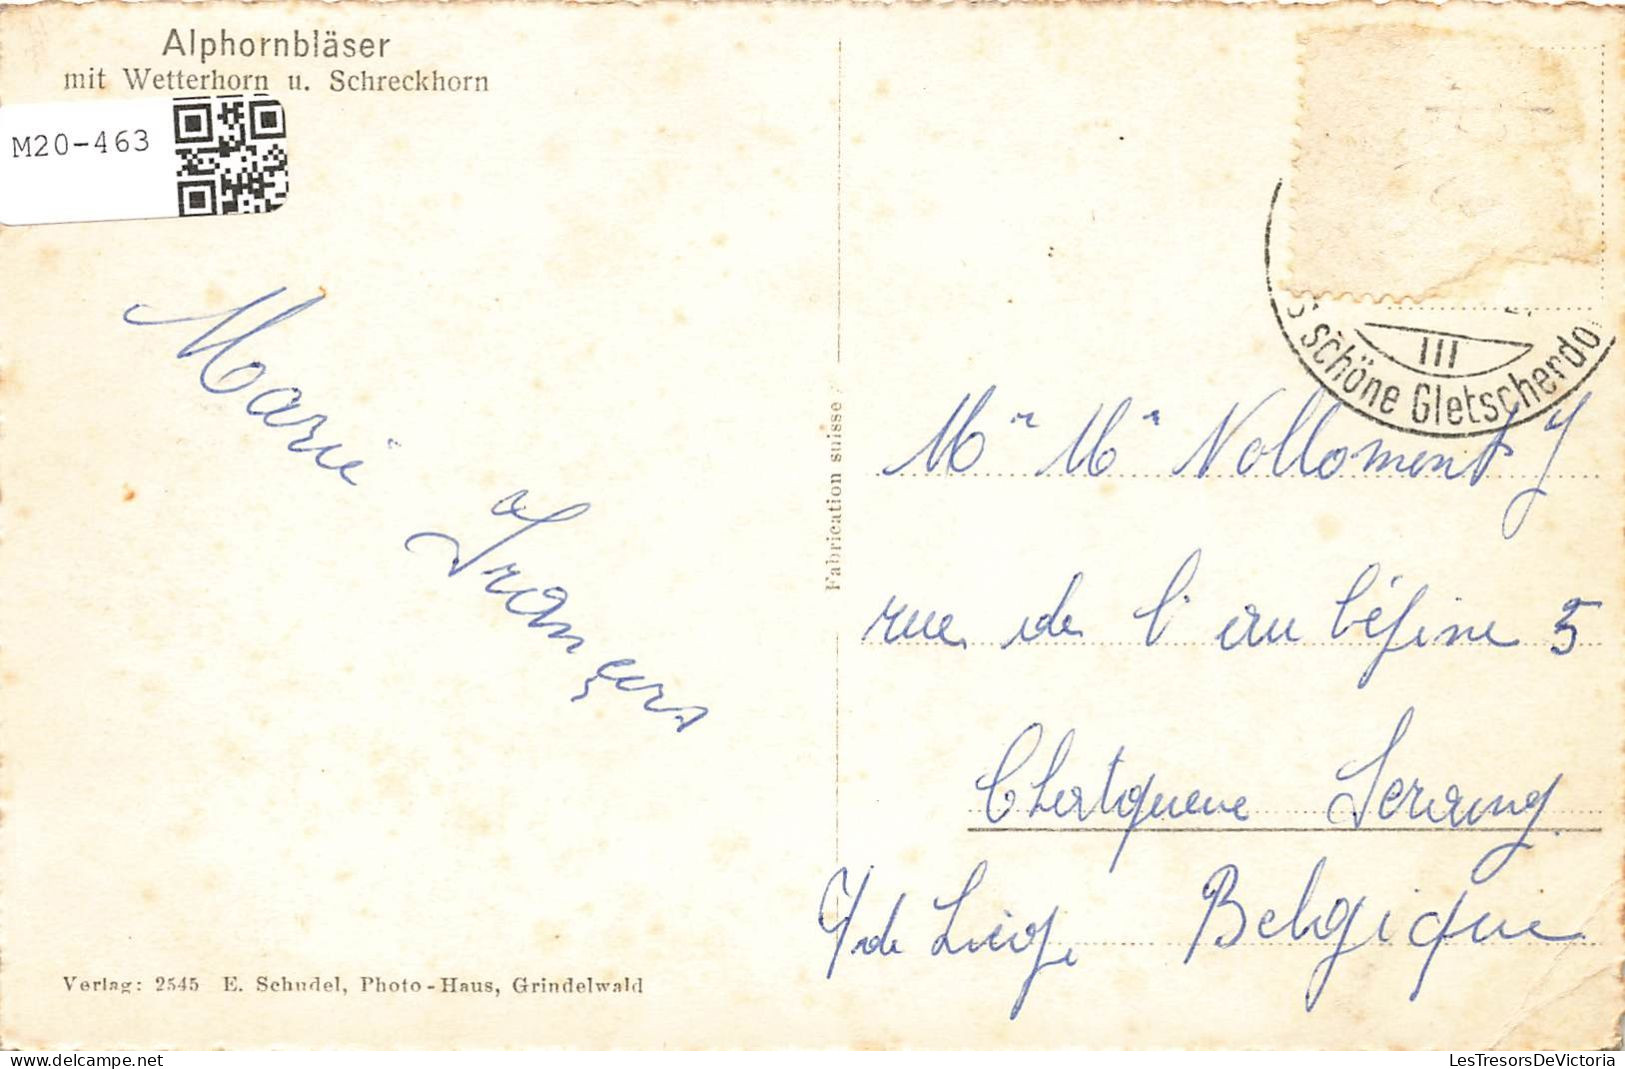 Alphornbläser
mit Wetterhorn u. Schreckhorn
M20-463
Marie
Françoise
Fabrication suisse
III
s schöne Gletscherdo
Mr Mr Nollomont J
rue de l'aubépine 5
Chatqueue Seraing
P/de Liège Belgique
Verlag: 2545 E. Schudel, Photo-Haus, Grindelwald
LesTresorsDeVictoria
delcampe.net